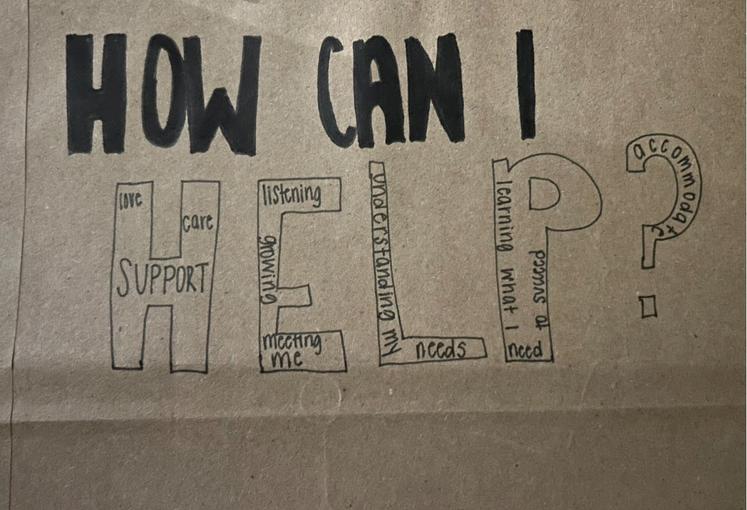 HOW CAN I
HELP?
love
care
SUPPORT
listening
growing
meeting
me
understanding my
needs
learning what I
need
to succeed
accommodate